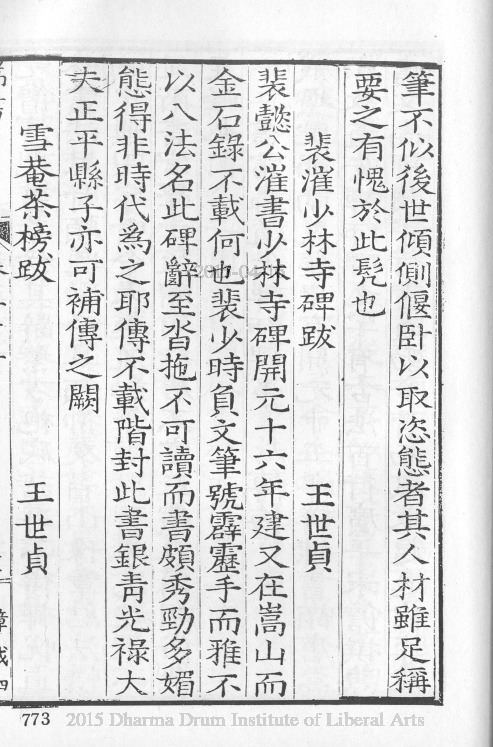 筆不似後世傾側偃卧以取恣態者其人材雖足稱
要之有愧於此髡也
裴漼少林寺碑跋　王世貞
裴懿公漼書少林寺碑開元十六年建又在嵩山而
金石錄不載何也裴少時負文筆號霹靂手而雅不
以八法名此碑辭至沓拖不可讀而書頗秀勁多媚
態得非時代為之耶傳不載階封此書銀青光祿大
夫正平縣子亦可補傳之闕
雪菴茶榜跋　王世貞
773
2015 Dharma Drum Institute of Liberal Arts